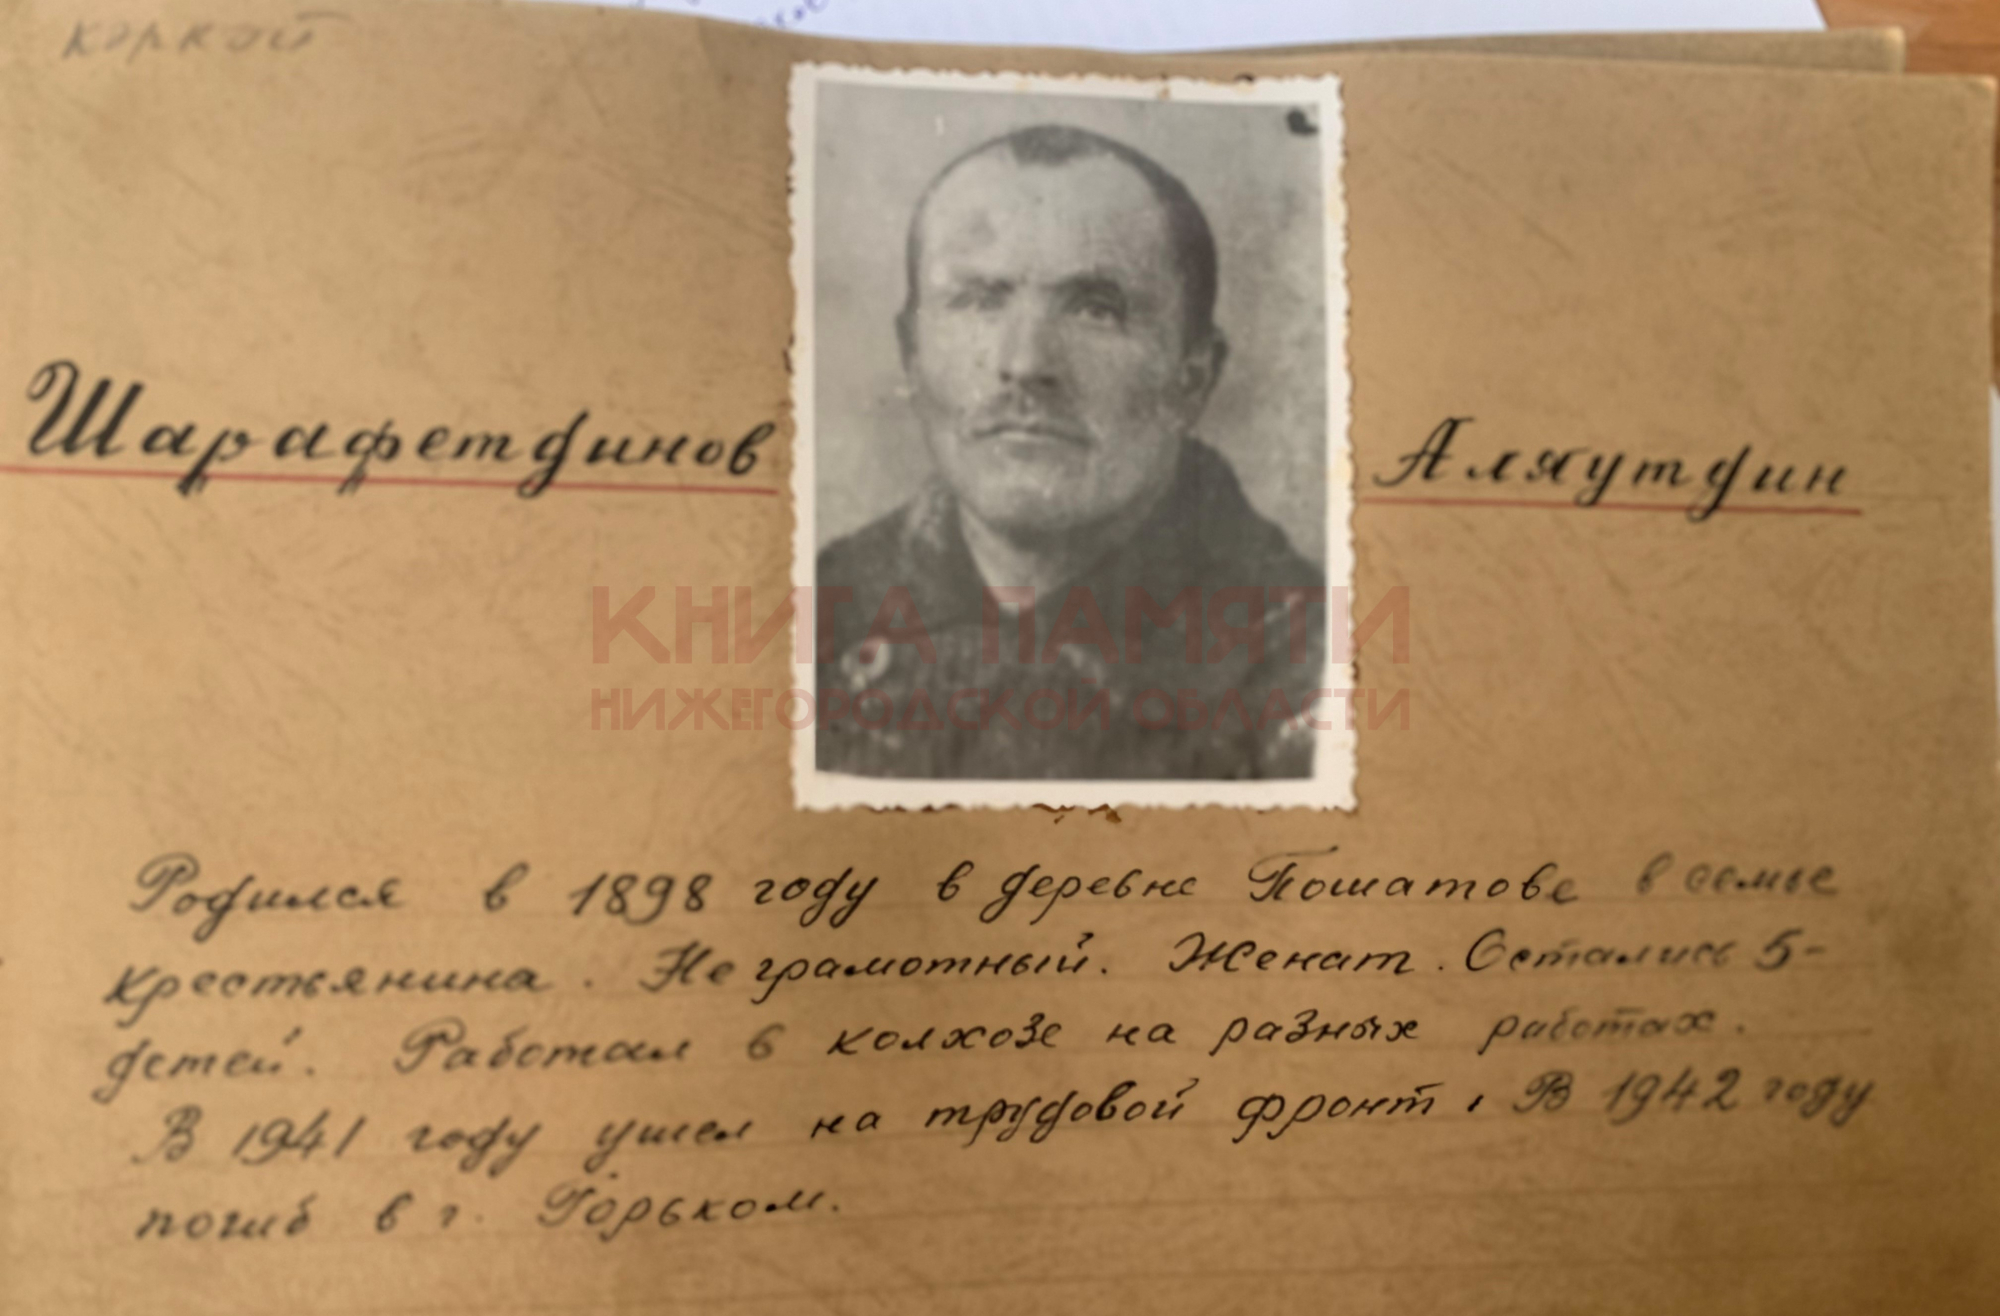 коркой
Шарафетдинов Аляутдин
КНИГА ПАМЯТИ
НИЖЕГОРОДСКОЙ ОБЛАСТИ
Родился в 1898 году в деревне Пошатове в семье
крестьянина. Не грамотный. Женат. Остались 5-
детей. Работал в колхозе на разных работах.
В 1941 году ушел на трудовой фронт. В 1942 году
погиб в г. Горьком.